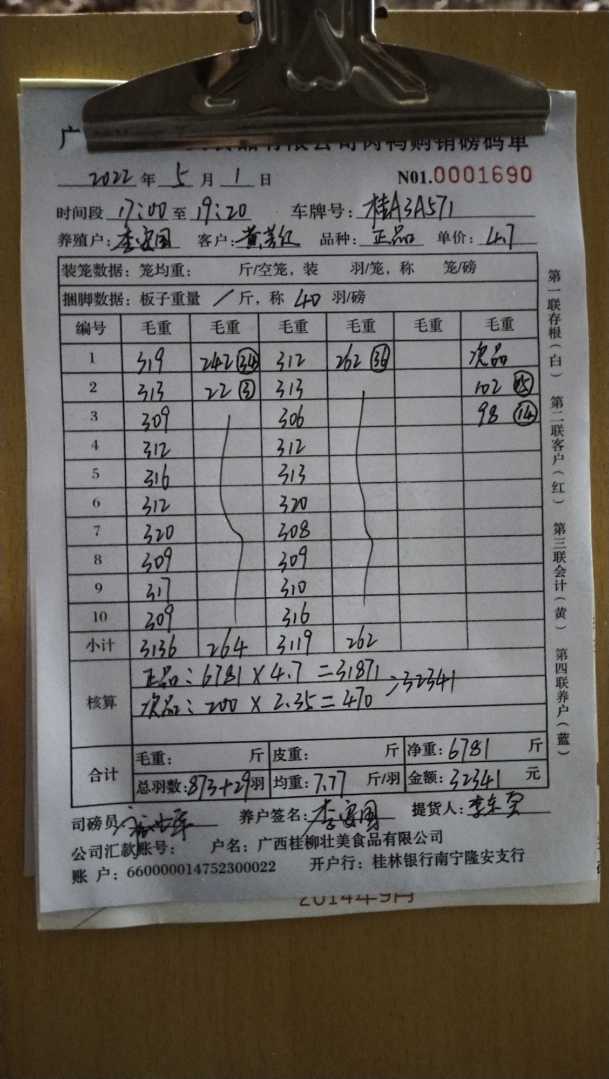 广 食品有限公司肉鸭购销磅码单
2022 年 5 月 1 日 N01.0001690
时间段 17:00 至 19:20 车牌号: 桂A3A571
养殖户: 李 国 客户: 黄 红 品种: 正品 单价: 4.7
装笼数据: 笼均重: 斤/空笼, 装 羽/笼, 称 笼/磅
捆脚数据: 板子重量 / 斤, 称 40 羽/磅
编号 毛重 毛重 毛重 毛重 毛重 毛重
1 319 242 34 312 262 36 次品
2 313 22 3 313 102 15
3 309 306 98 14
4 312 312
5 316 313
6 312 320
7 320 308
8 309 309
9 317 310
10 309 316
小计 3136 264 3119 262
核算 正品: 6781 × 4.7 = 31871
次品: 200 × 2.35 = 470 ; 32341
合计 毛重: 斤 皮重: 斤 净重: 6781 斤
总羽数: 873+29 羽 均重: 7.77 斤/羽 金额: 32341 元
司磅员 养户签名: 李 国 提货人: 李
公司汇款账号: 户名: 广西桂柳壮美食品有限公司
账 户: 660000014752300022 开户行: 桂林银行南宁隆安支行
第一联存根(白) 第二联客户(红) 第三联会计(黄) 第四联养户(蓝)
2014年9月